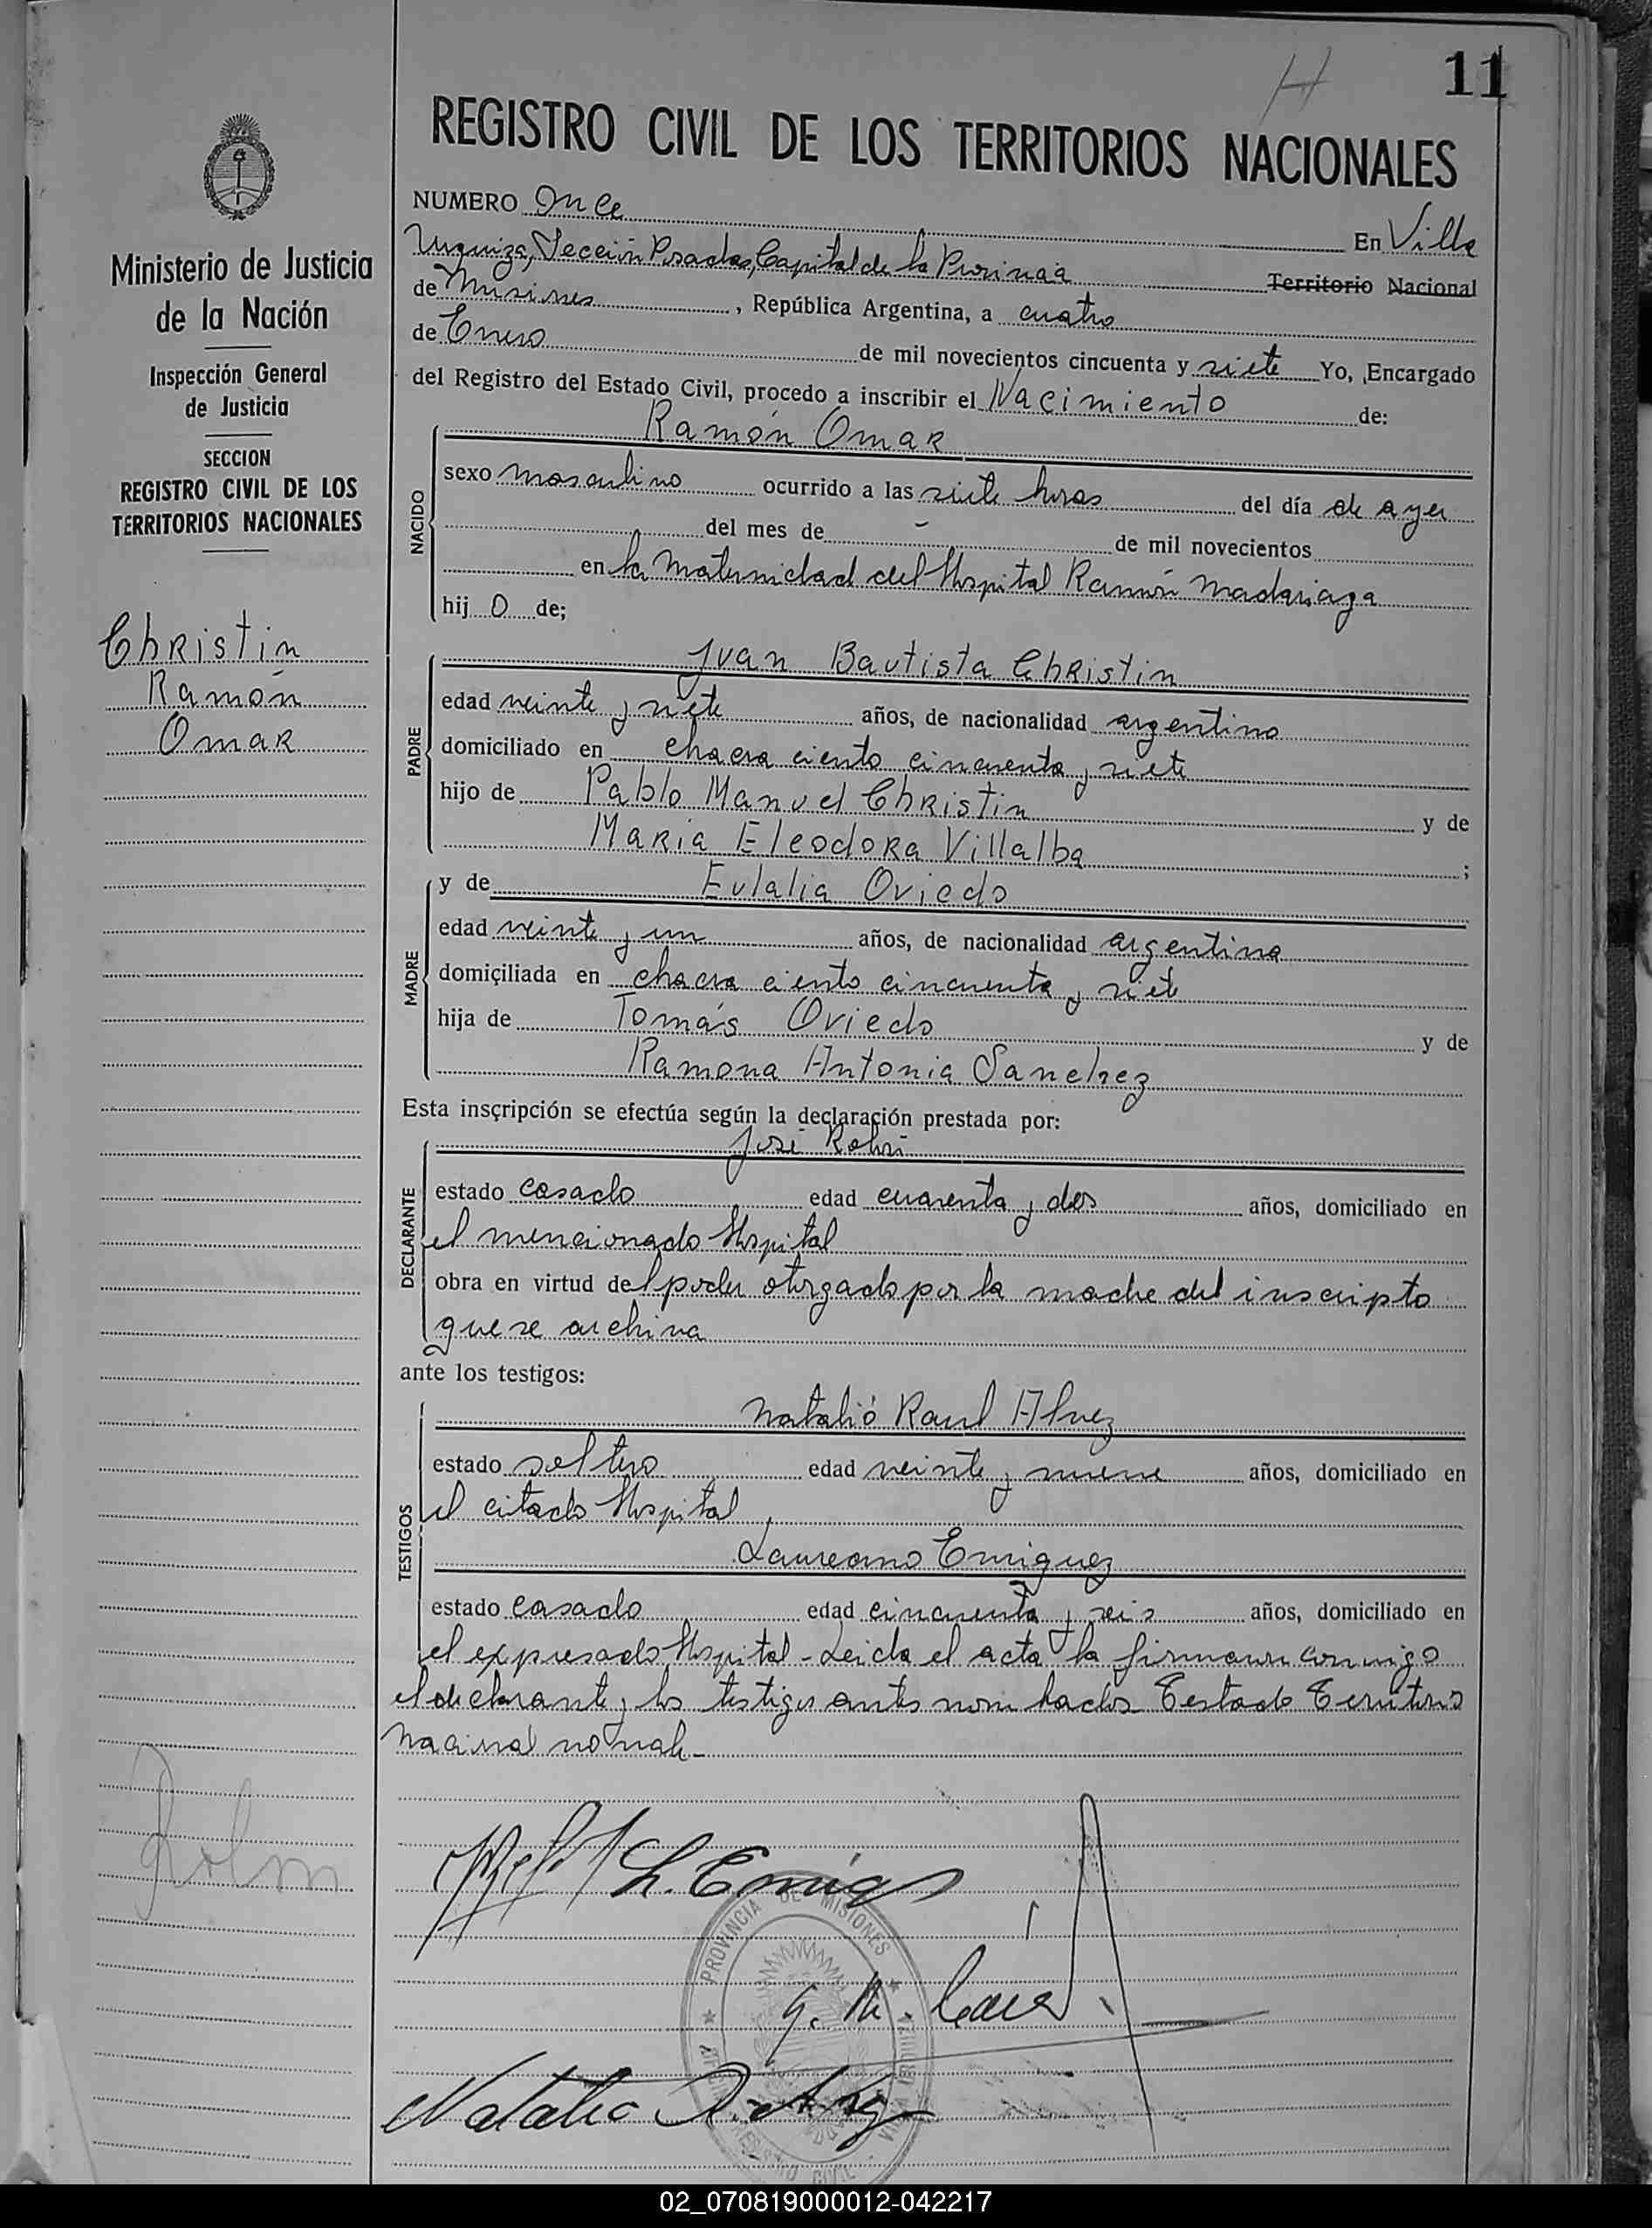 11
H
REGISTRO CIVIL DE LOS TERRITORIOS NACIONALES
NUMERO Once En Villa
Urquiza, Sección Posadas, Capital de la Provincia Territorio Nacional
de Misiones, República Argentina, a cuatro
de Enero de mil novecientos cincuenta y siete Yo, Encargado
del Registro del Estado Civil, procedo a inscribir el Nacimiento de:
Ramón Omar
NACIDO
sexo masculino ocurrido a las siete horas del día de ayer
del mes de - de mil novecientos
en la Maternidad del Hospital Ramón Madariaga
hij o de;
Juan Bautista Christin
PADRE
edad veinte y siete años, de nacionalidad argentino
domiciliado en chacra ciento cincuenta y siete
hijo de Pablo Manuel Christin y de
Maria Eleodora Villalba ;
y de Eulalia Oviedo
MADRE
edad veinte y un años, de nacionalidad argentina
domiciliada en chacra ciento cincuenta y siete
hija de Tomás Oviedo y de
Ramona Antonia Sanchez
Esta inscripción se efectúa según la declaración prestada por:
José
DECLARANTE
estado casado edad cuarenta y dos años, domiciliado en
el mencionado Hospital
obra en virtud del poder otorgado por la madre del inscripto
que se archiva
ante los testigos:
Natalió Raul
TESTIGOS
estado soltero edad veinte y nueve años, domiciliado en
el citado Hospital
Laureano Enriquez
estado casado edad cincuenta y seis años, domiciliado en
el expresado Hospital - Leida el acta la firmaron conmigo
el declarante y los testigos antes nombrados Testado Territorio
Nacional no vale -
L.
PROVINCIA DE MISIONES
REGISTRO CIVIL
Natalio R.
Ministerio de Justicia
de la Nación
Inspección General
de Justicia
SECCION
REGISTRO CIVIL DE LOS
TERRITORIOS NACIONALES
Christin
Ramón
Omar
02_070819000012-042217